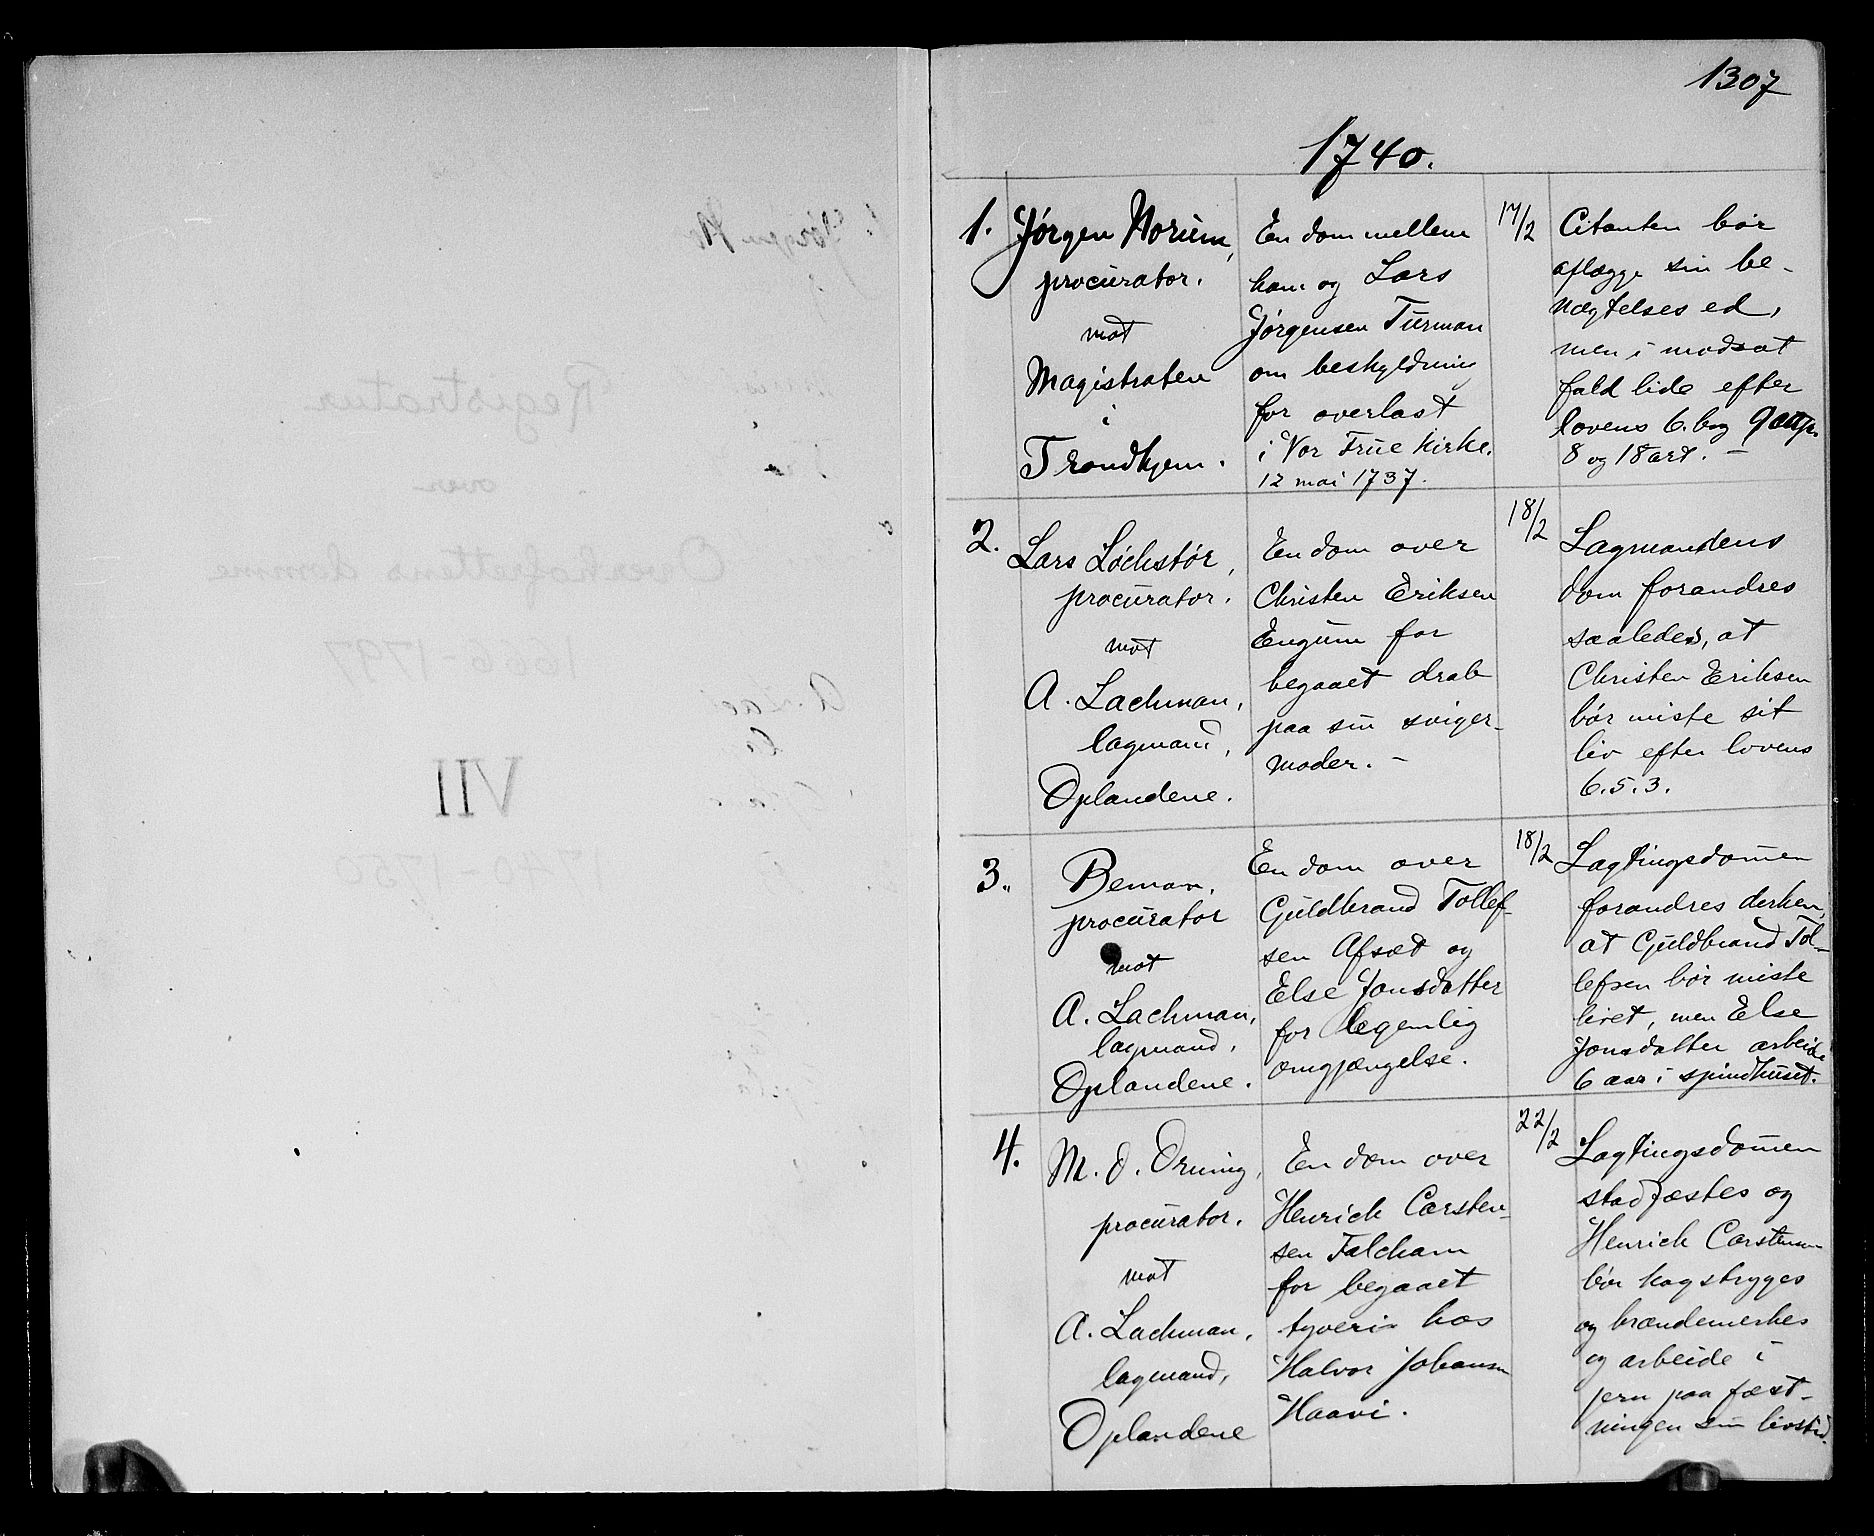 1307
1740.
1. Jørgen Norum,
procurator.
mot
Magistraten
i
Trondhjem.
En dom mellem
ham og Lars
Jørgensen Turman
om beskyldning
for overlast
i Vor Frue Kirke.
12 mai 1737.
17/2
Citanten bør
aflægge sin be-
nægtelses ed,
men i modsat
fald lide efter
lovens 6. bog 9 cap.
8 og 18 art. –
2. Lars Löchstör,
procurator.
mot
A. Lachman,
lagmand,
Oplandene.
En dom over
Christen Eriksen
Engum for
begaaet drab
paa sin sviger-
moder. –
18/2
Lagmandens
dom forandres
saaledes, at
Christen Eriksen
bør miste sit
liv efter lovens
6.5.3.
3. Beman,
procurator
mot
A. Lachman,
lagmand,
Oplandene.
En dom over
Guldbrand Tollef-
sen Afsæt og
Else Jonsdatter
for legemlig
omgjængelse.
18/2
Lagtingsdommen
forandres derhen,
at Guldbrand Tol-
lefsen bør miste
livet, men Else
Jonsdatter arbeide
6 aar i spindhuset.
4. M. O. Orning,
procurator.
mot
A. Lachman,
lagmand,
Oplandene
En dom over
Henrich Carsten-
sen Falcham
for begaaet
tyveri hos
Halvor Johansen
Haavi.
22/2
Lagtingsdommen
stadfæstes og
Henrich Carstensen
bør kagstryges
og brændemerkes
og arbeide i
jern paa fæst-
ningen sin livstid.
Registratur
over
Overhofrettens domme
1666 1797
VII
1740-1750